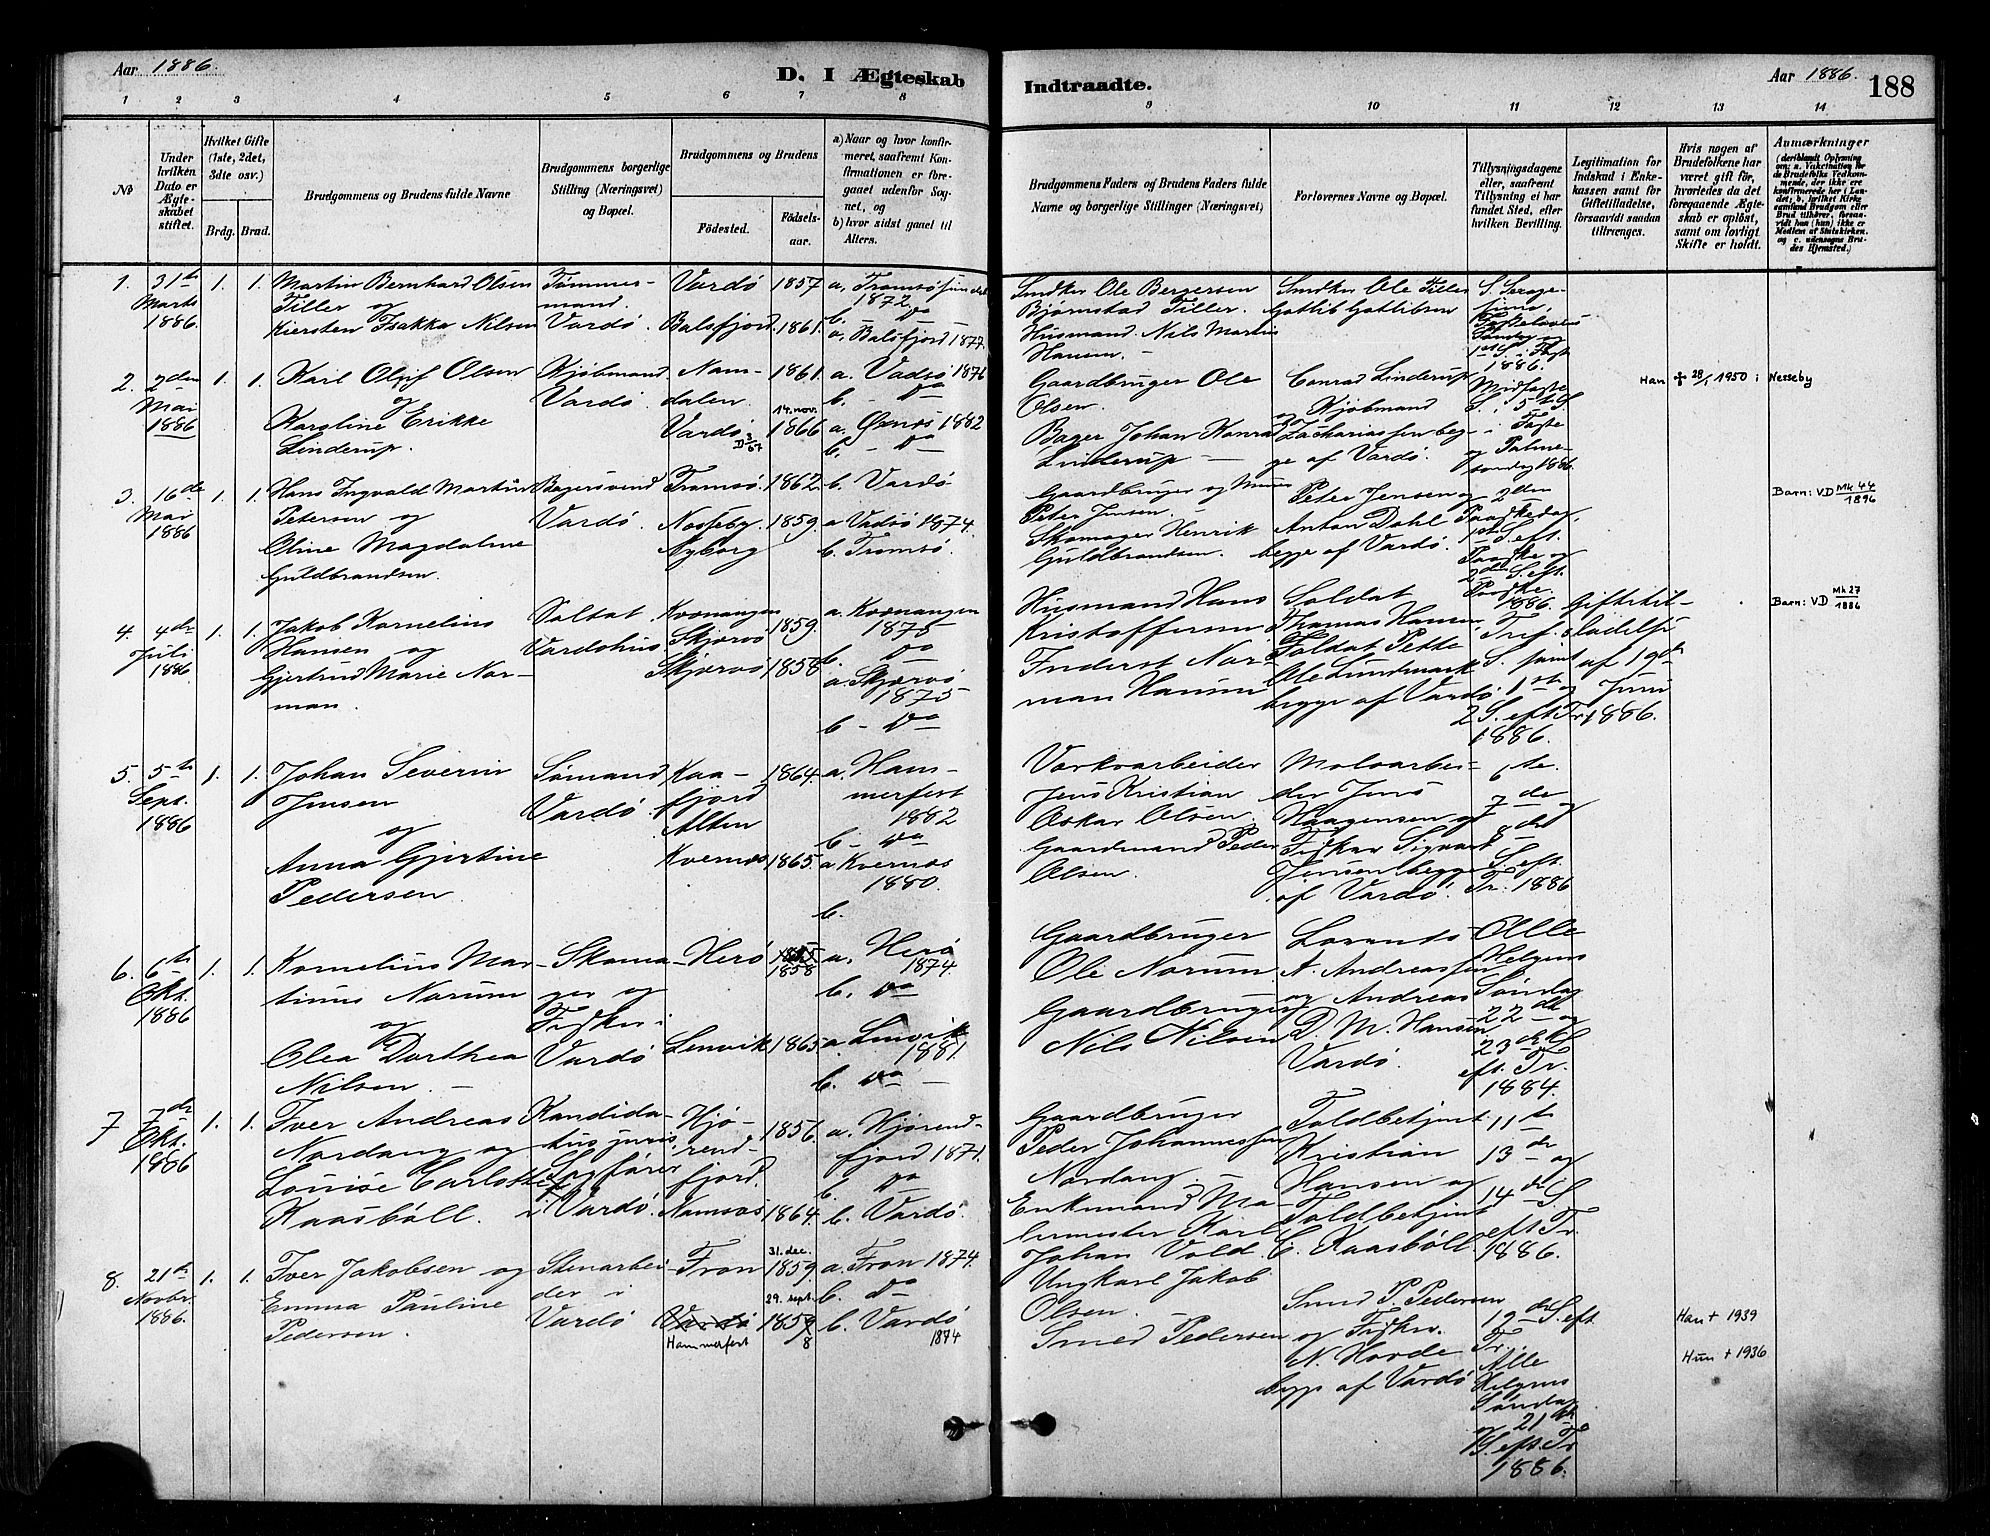 Aar 1886.
D. I Ægteskab
Indtraadte.
Aar 1886.
188
1 2 3 4 5 6 7 8 9 10 11 12 13 14
No
Under hvilken Dato er Ægteskabet stiftet.
Hvilket Gifte (1ste, 2det, 3die osv.)
Brdg. Brud.
Brudgommens og Brudens fulde Navne
Brudgommens borgerlige Stilling (Næringsvei) og Bopæl.
Brudgommens og Brudens
Fødested.
Fødselsaar.
a) Naar og hvor konfirmeret, saafremt Konfirmationen er foregaaet udenfor Sognet, og
b) hvor sidst gaaet til Alters.
Brudgommens Faders og Brudens Faders fulde Navne og borgerlige Stillinger (Næringsvei)
Forlovernes Navne og Bopæl.
Tillysningsdagene eller, saafremt Tillysning ei har fundet Sted, efter hvilken Bevilling.
Legitimation for Indskud i Enkekassen samt for Giftetilladelse, forsaavidt saadan tiltrænges.
Hvis nogen af Brudefolkene har været gift før, hvorledes da det foregaaende Ægteskab er opløst, samt om lovligt Skifte er holdt.
Anmærkninger
(deriblandt Oplysning om: a. Vakcination for de Brudefolks Vedkommende, der ikke ere konfirmerede her i Landet; b. hvilket Kirkesamfund Brudgom eller Brud tilhører, forsaavidt han (hun) ikke er Medlem af Statskirken, og c. udensogns Brudes Hjemsted.)
1. 31te Marts 1886. 1. 1.
Martin Bernhard Olsen
Tiller og
Kiersten Isakka Nilsen
Tømmermand.
Vardø.
Vardø 1857
Balsfjord. 1861.
a. Tromsøsundet
1872
b. do
a. Balsfjord 1877.
Smdkr Ole Bergersen
Bjørnstad Tiller.
Husmand Nils Martin
Hansen.
Smdkr Ole Tiller
Gotlib Gotlibsen
1ste S. i Faste
1886.
2. 2den Mai 1886 1. 1.
Karl Oluf Olsen
og
Karoline Erikke
Linderup.
Kjøbmand
Vardø.
Namdalen. 1861.
Vardø 14. nov. 1866
a. Vadsø 1876
b. - do
a. Øxnes 1882
b. - do
Gaardbruger Ole
Olsen.
Bager Johan Konrad
Linderup
Conrad Linderup
og Kjøbmand
Zachariassen begge af Vardø.
Midfaste
S. 5te S.
i Faste
og Palmesøndag 1886.
Han ✢ 28/1 1950 i Nesseby
3. 16de Mai 1886 1. 1.
Hans Ingvald Martin
Petersen og
Oline Magdalene
Guldbrandsen.
Bagersvend
Vardø.
Tromsø. 1862.
Næsseby 1859.
Nyborg
b. Vardø
a Vadsø 1874.
b. Tromsø.
Gaardbruger og Murer
Peter Jensen.
Skomager Henrik
Guldbrandsen.
Peter Jensen og
Anton Dahl
begge af Vardø.
2den
Paaskedag,
1ste S. eft.
Paaske og
2den S. eft.
Paaske.
1886.
Barn: VD Mk 44/1896
4. 4de Juli 1886 1. 1.
Jakob Kornelius
Hansen og
Gjertrud Marie Norman.
Soldat
Vardøhus
Kvænangen
Skjærvø 1859.
Skjærvø 1858
a. Kvænangen
1875
b. do
a Skjærvø
1875
b - do
Husmand Hans
Kristoffersen
Inderst Norman Hansen
Soldat
Thomas Hansen,
Soldat Petter
Ole Lundmark
begge af Vardø.
Tref.
S. samt
1ste og
2 S. eft Tr.
1886.
Giftetilladelse
af 19de
Juni
1886.
Barn: VD Mk 27/1886
5. 5te Sept. 1886 1. 1.
Johan Severin
Jensen
og
Anna Gjertine
Pedersen.
Sømand
Vardø.
Kaafjord
Alten
1864.
Kvernæs 1865.
a. Hammerfest
1882
b - do
a Kvernæs
1880.
b.
Værkarbeider
Jens Kristian
Oskar Olsen.
Gaardmand Peder
Olsen.
Moloarbeider Jens
Haagensen og
Fisker Sigvart
Jensen begge
af Vardø.
6te.
7de og
8de
S. eft.
Tr. 1886
6. 6te Okt. 1886 1. 1.
Kornelius Martinus Norum
og
Olea Dorthea
Nilsen.
Skomager og
Fisker i
Vardø
Herø 1858
Lenvik 1865
a. Herø
1874.
b. do
a. Lenvik
1881.
b. do
Gaardbruger
Ole Norum
Gaardbruger
Nils Nilsen
Lorents
A. Andreassen
og Andreas
D. M. Hansen
Vardø.
Alle
Helgens
Søndag
22de og
23de S
eft. Tr.
1884.
7 7de Okt. 1886 1. 1.
Iver Andreas
Nordang og
Louise Carlotte
Kaasbøll.
Kandidatus juris,
Sagfører
i Vardø.
Hjørendfjord. 1856.
Namsos 1864.
a. Hjørendfjord 1871.
b. do
b. Vardø.
Gaardbruger
Peder Johannessen
Nordang
Enkemand Malermester Karl
Johan Vold.
Toldbetjent
Kristian
Hansen og
Toldbetjent
C. Kaasbøll.
11te
13de og
14de S
eft Tr.
1886.
8. 21de Novbr. 1886. 1. 1.
Iver Jakobsen og
Emma Pauline
Pedersen.
Stenarbeider i
Vardø
Fron 31. dec. 1859
Vardø Hammerfest 29. sept. 1859 8
a. Fron 1874.
b. do
b. Vardø
1874
Ungkarl Jakob
Olsen.
Smed Pedersen
Smed P. Pedersen
og Fisker.
N. Horde
begge af Vardø
19de S. eft
Tr.
Alle
Helgens
Søndag
og 21de
S. eft Tr
1886.
Han + 1939
Hun + 1936